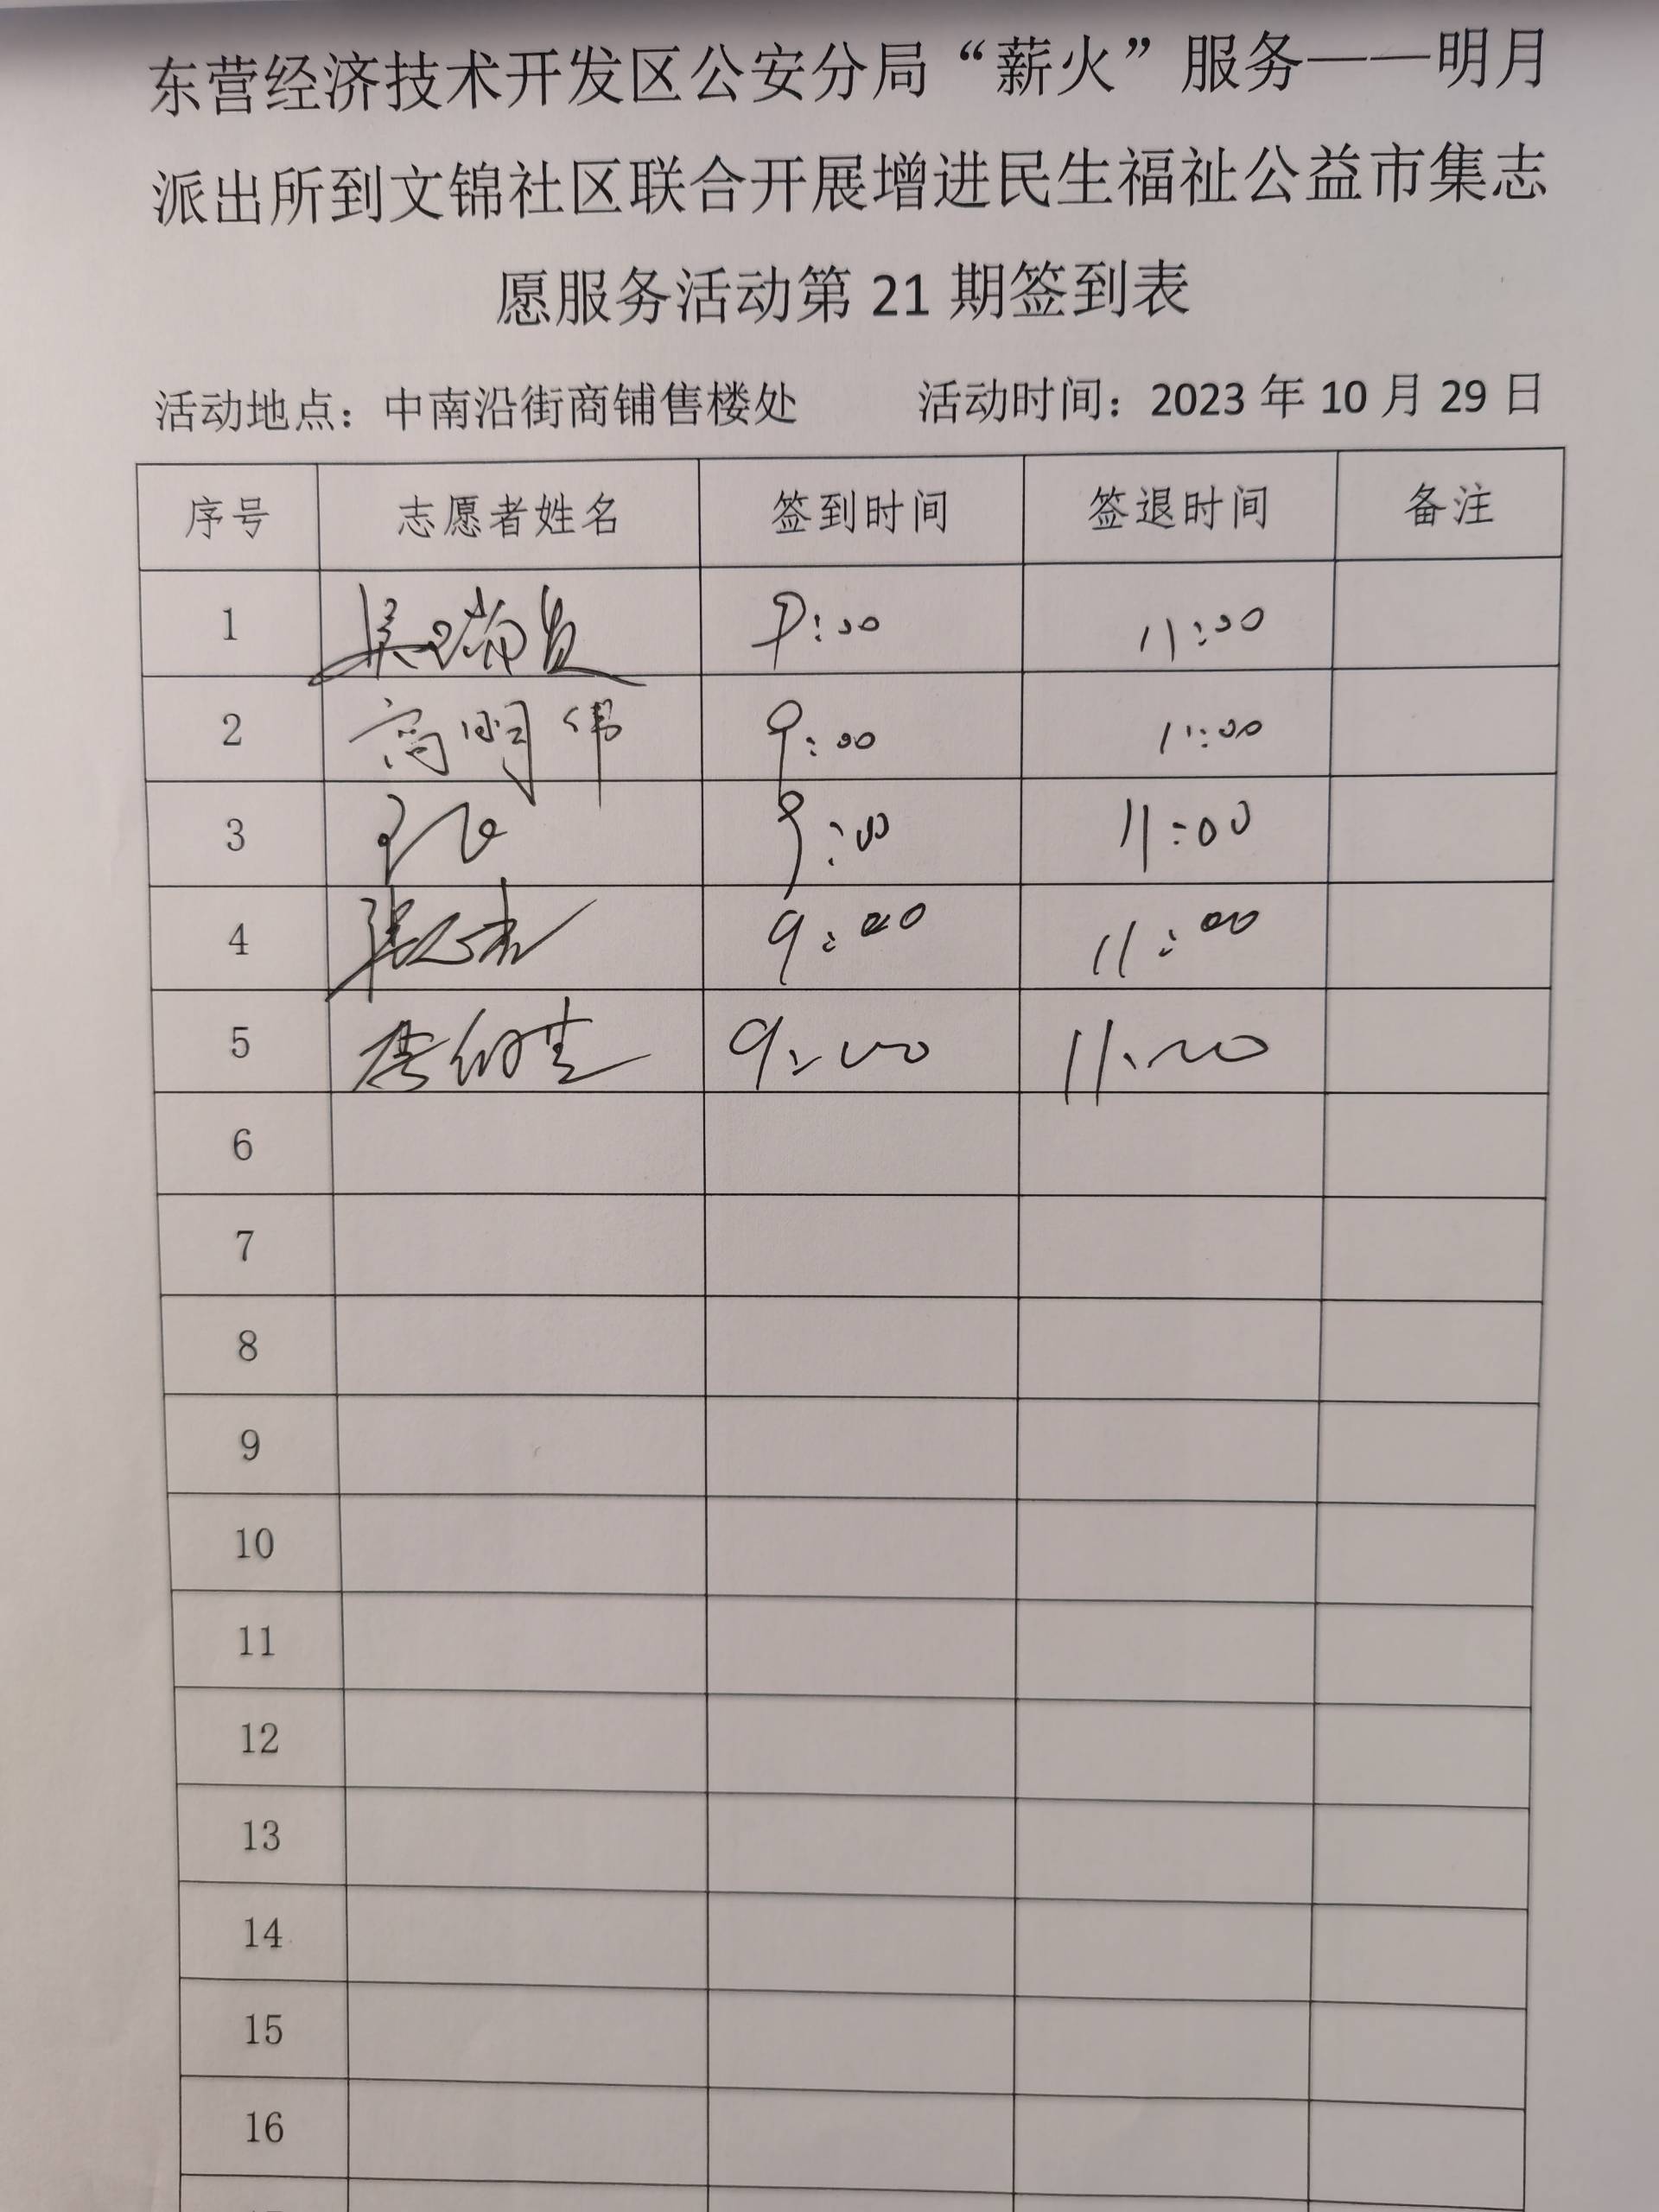 东营经济技术开发区公安分局“薪火”服务——明月
派出所到文锦社区联合开展增进民生福祉公益市集志
愿服务活动第 21 期签到表
活动地点：中南沿街商铺售楼处 活动时间：2023 年 10 月 29 日
序号 志愿者姓名 签到时间 签退时间 备注
1 9:00 11:00
2 高明伟 9:00 11:00
3 9:00 11:00
4 9:00 11:00
5 9:00 11:00
6
7
8
9
10
11
12
13
14
15
16